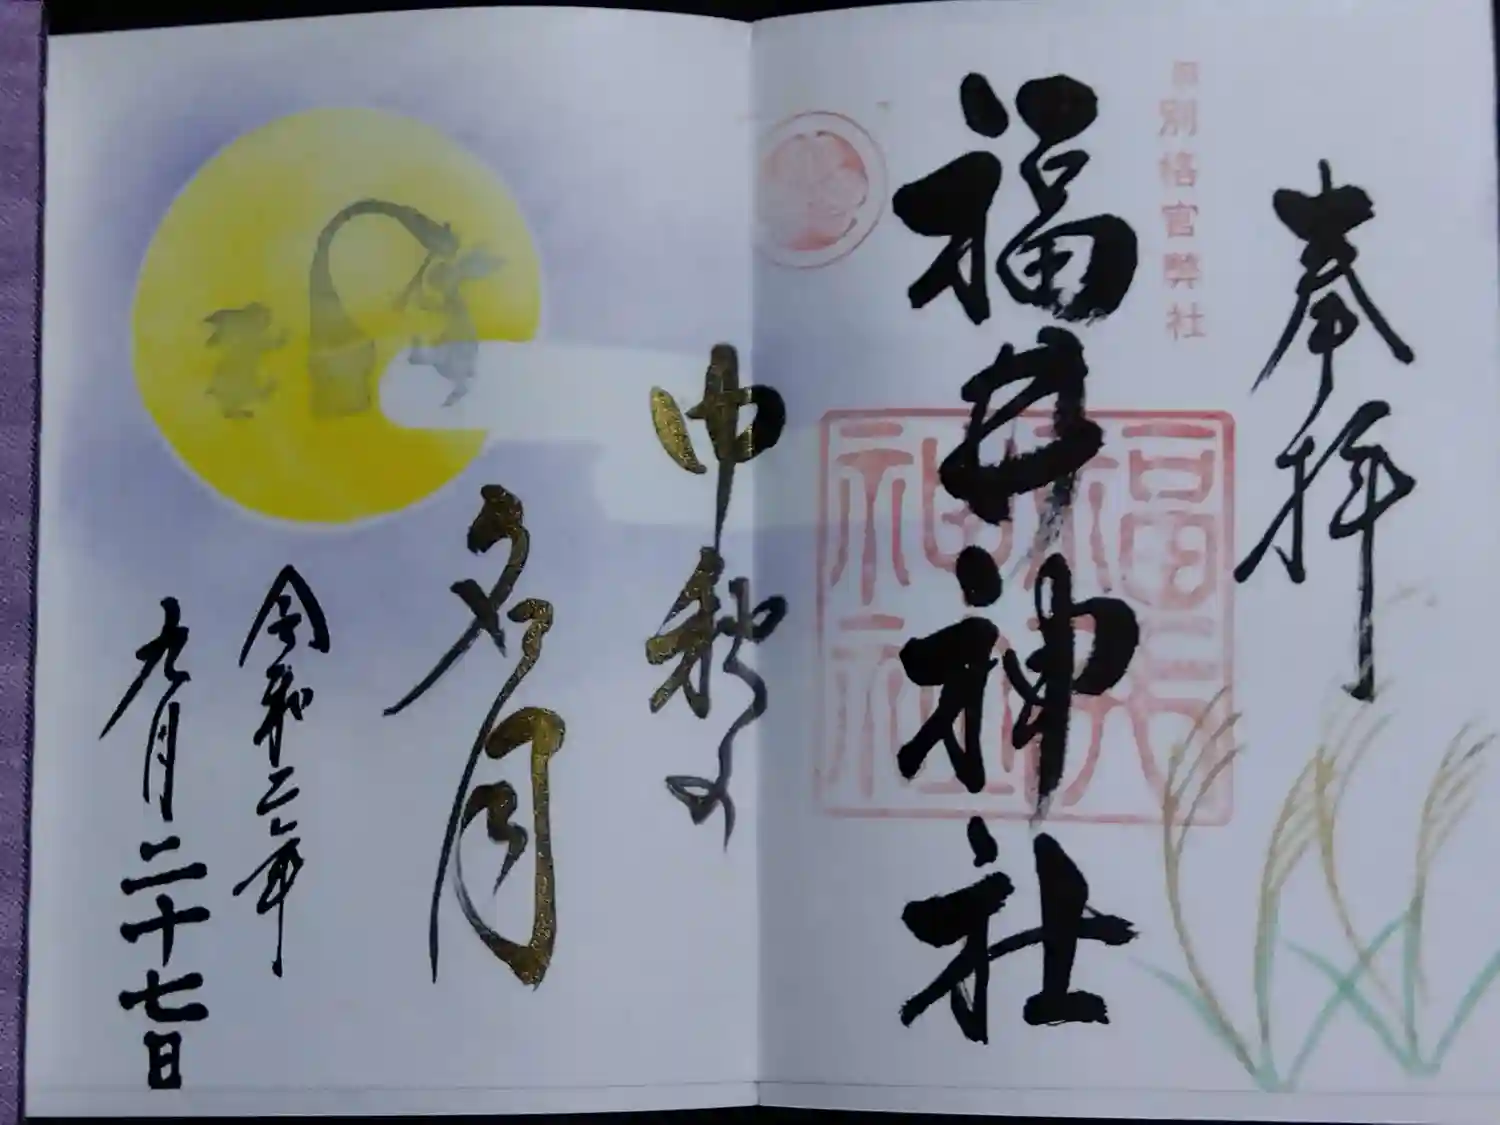 奉拝
別格官弊社
福井神社
福井神社
中秋の
名月
令和二年
九月二十七日